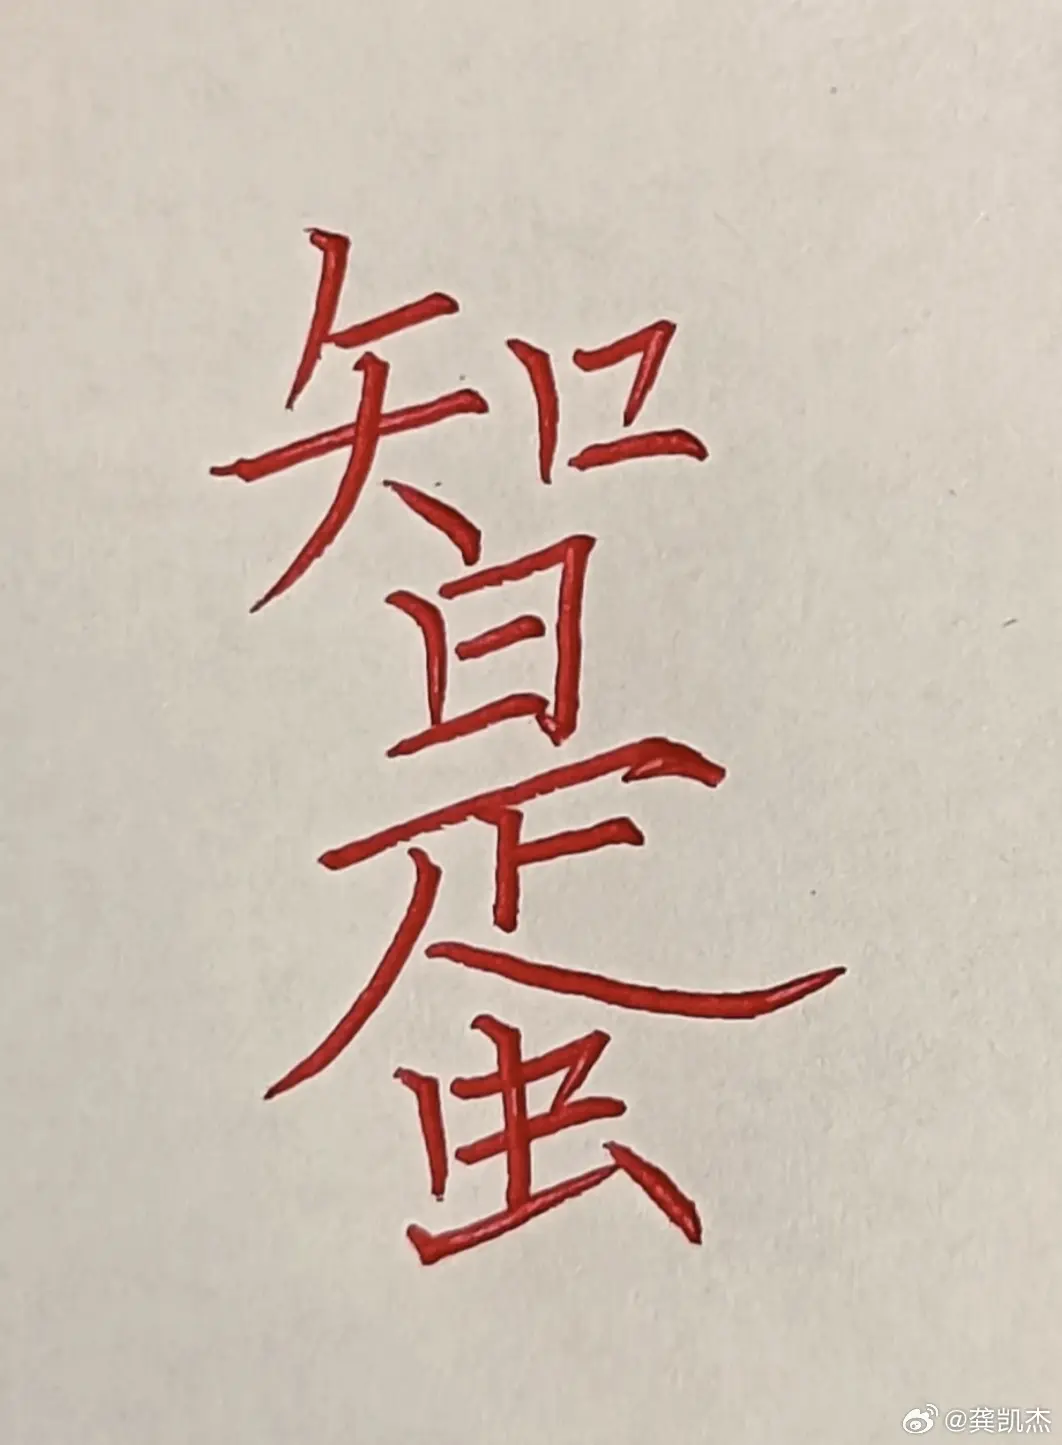 智
蛋
@龚凯杰